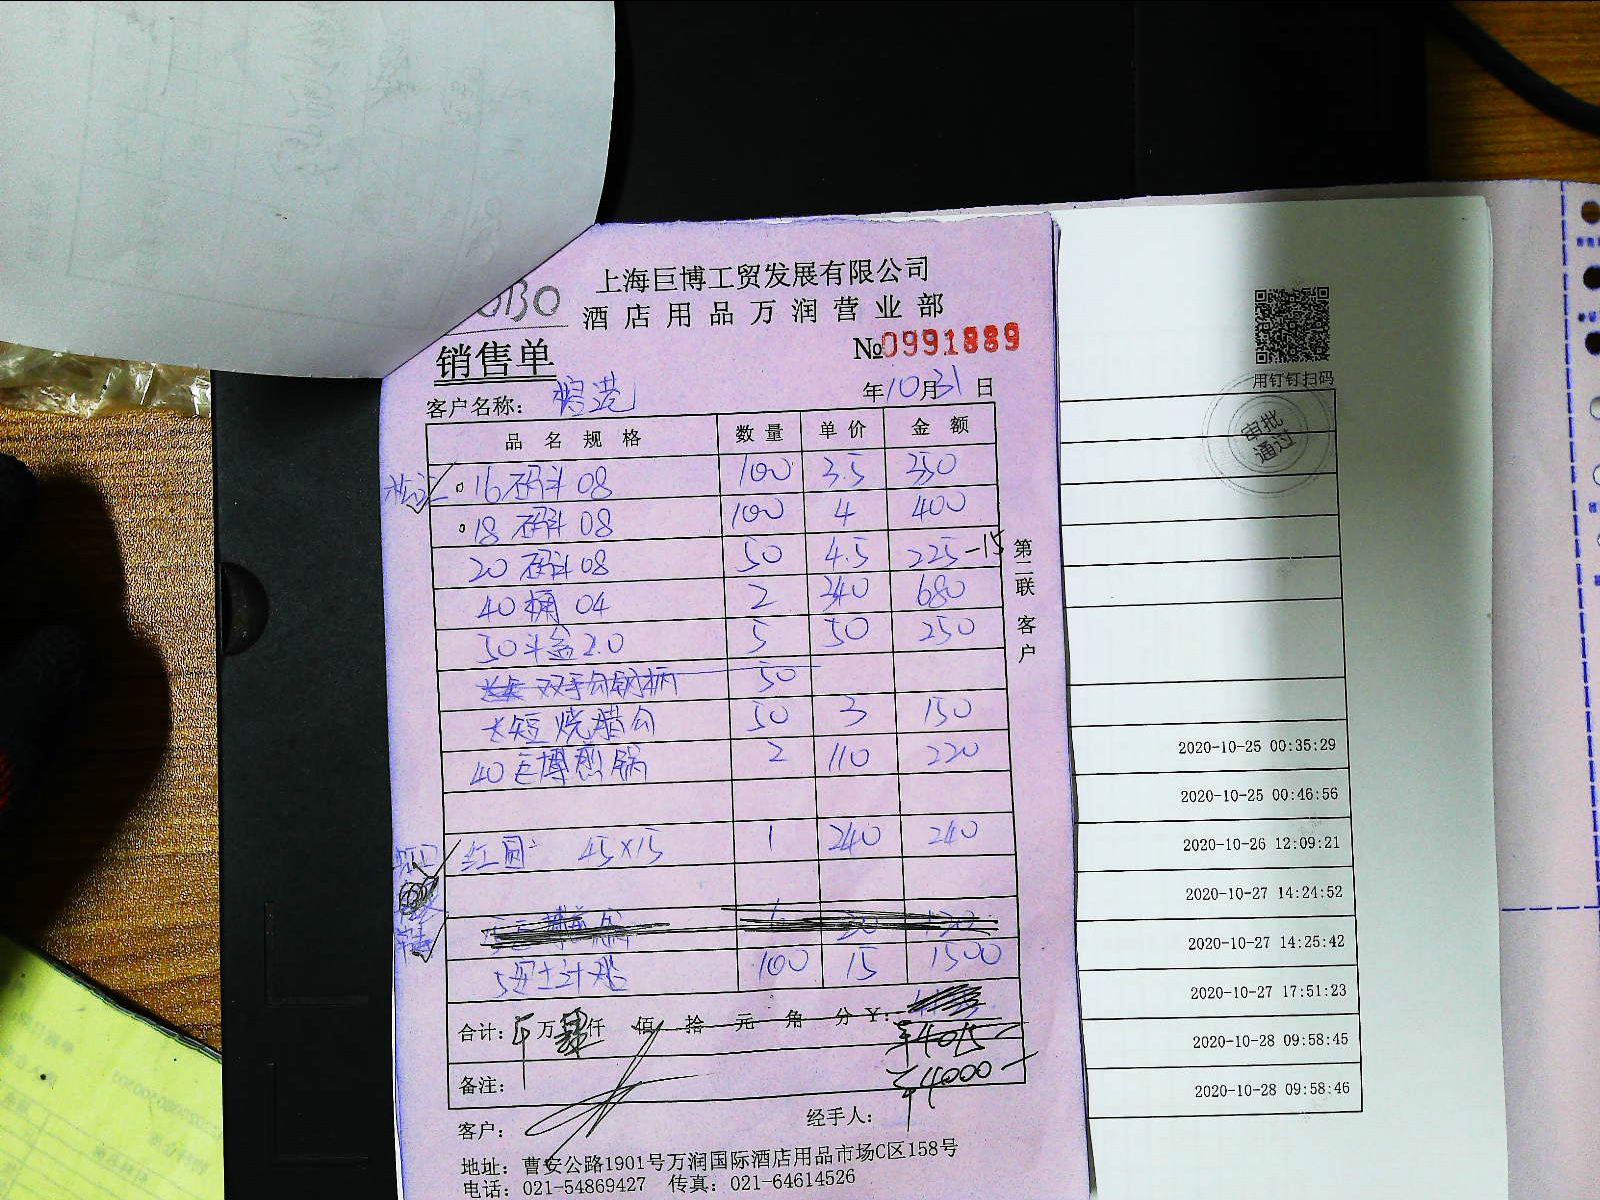 OBO
上海巨博工贸发展有限公司
酒店用品万润营业部
销售单
№0991889
客户名称:
年10月31日
品名规格 数量 单价 金额
16码斗08 100 3.5 350
18码斗08 100 4 400
20码斗08 50 4.5 225-15
40桶04 2 340 680
50斗盆2.0 5 50 250
50
长短烧腊勾 50 3 150
40巨博煎锅 2 110 220
红圆 45×15 1 240 240
100 15 1500
合计: 万 仟 佰 拾 元 角 分 ¥:
¥4015
备注:
¥4000
第二联 客户
客户:
经手人:
地址: 曹安公路1901号万润国际酒店用品市场C区158号
电话: 021-54869427 传真: 021-64614526
用钉钉扫码
审批
通过
2020-10-25 00:35:29
2020-10-25 00:46:56
2020-10-26 12:09:21
2020-10-27 14:24:52
2020-10-27 14:25:42
2020-10-27 17:51:23
2020-10-28 09:58:45
2020-10-28 09:58:46